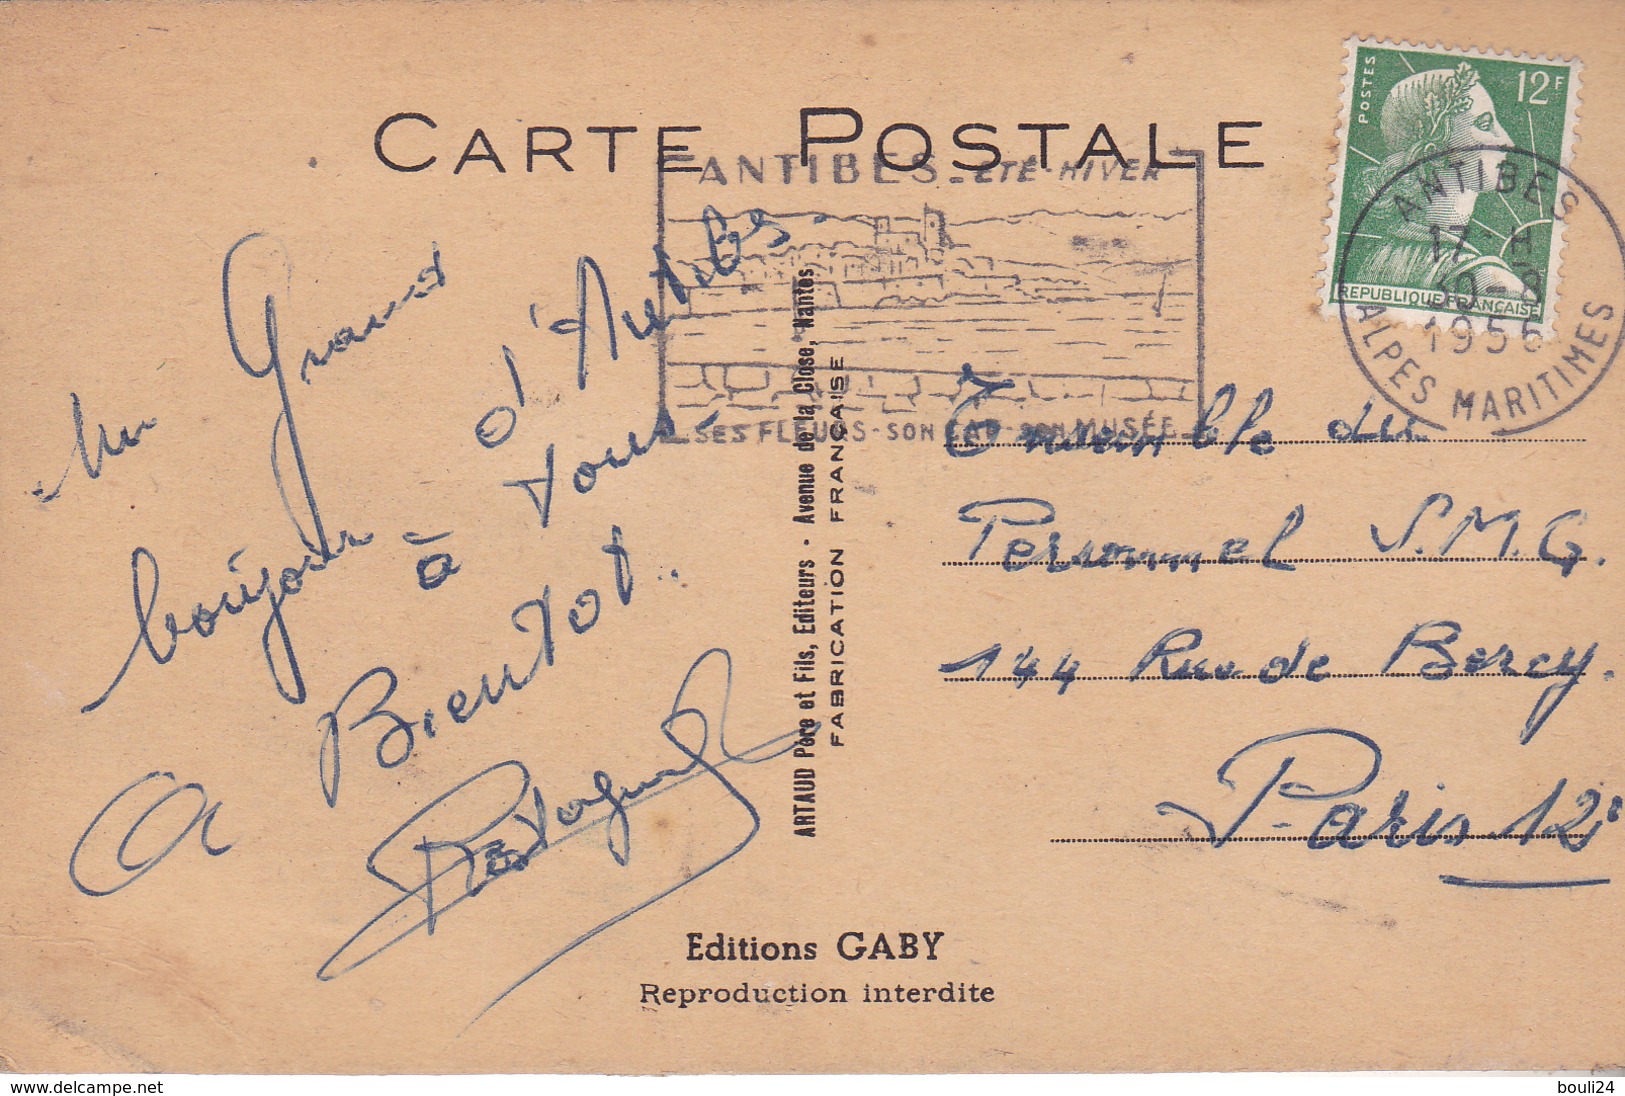 CARTE POSTALE
ANTIBES - ÉTÉ - HIVER
SES FLEURS - SON CAP - SON MUSÉE
POSTES
12F
REPUBLIQUE FRANÇAISE
ANTIBES
17 H
30 - 8
195
ALPES MARITIMES
Un Grand
bonjour d'Antibes.
à tous.
A Bientot.
ARTAUD Père et Fils, Editeurs · Avenue de la Close, Nantes
FABRICATION FRANÇAISE
Ensemble du
Personnel S.M.G.
144 Rue de Bercy.
Paris 12e
Editions GABY
Reproduction interdite
www.delcampe.net
bouli24